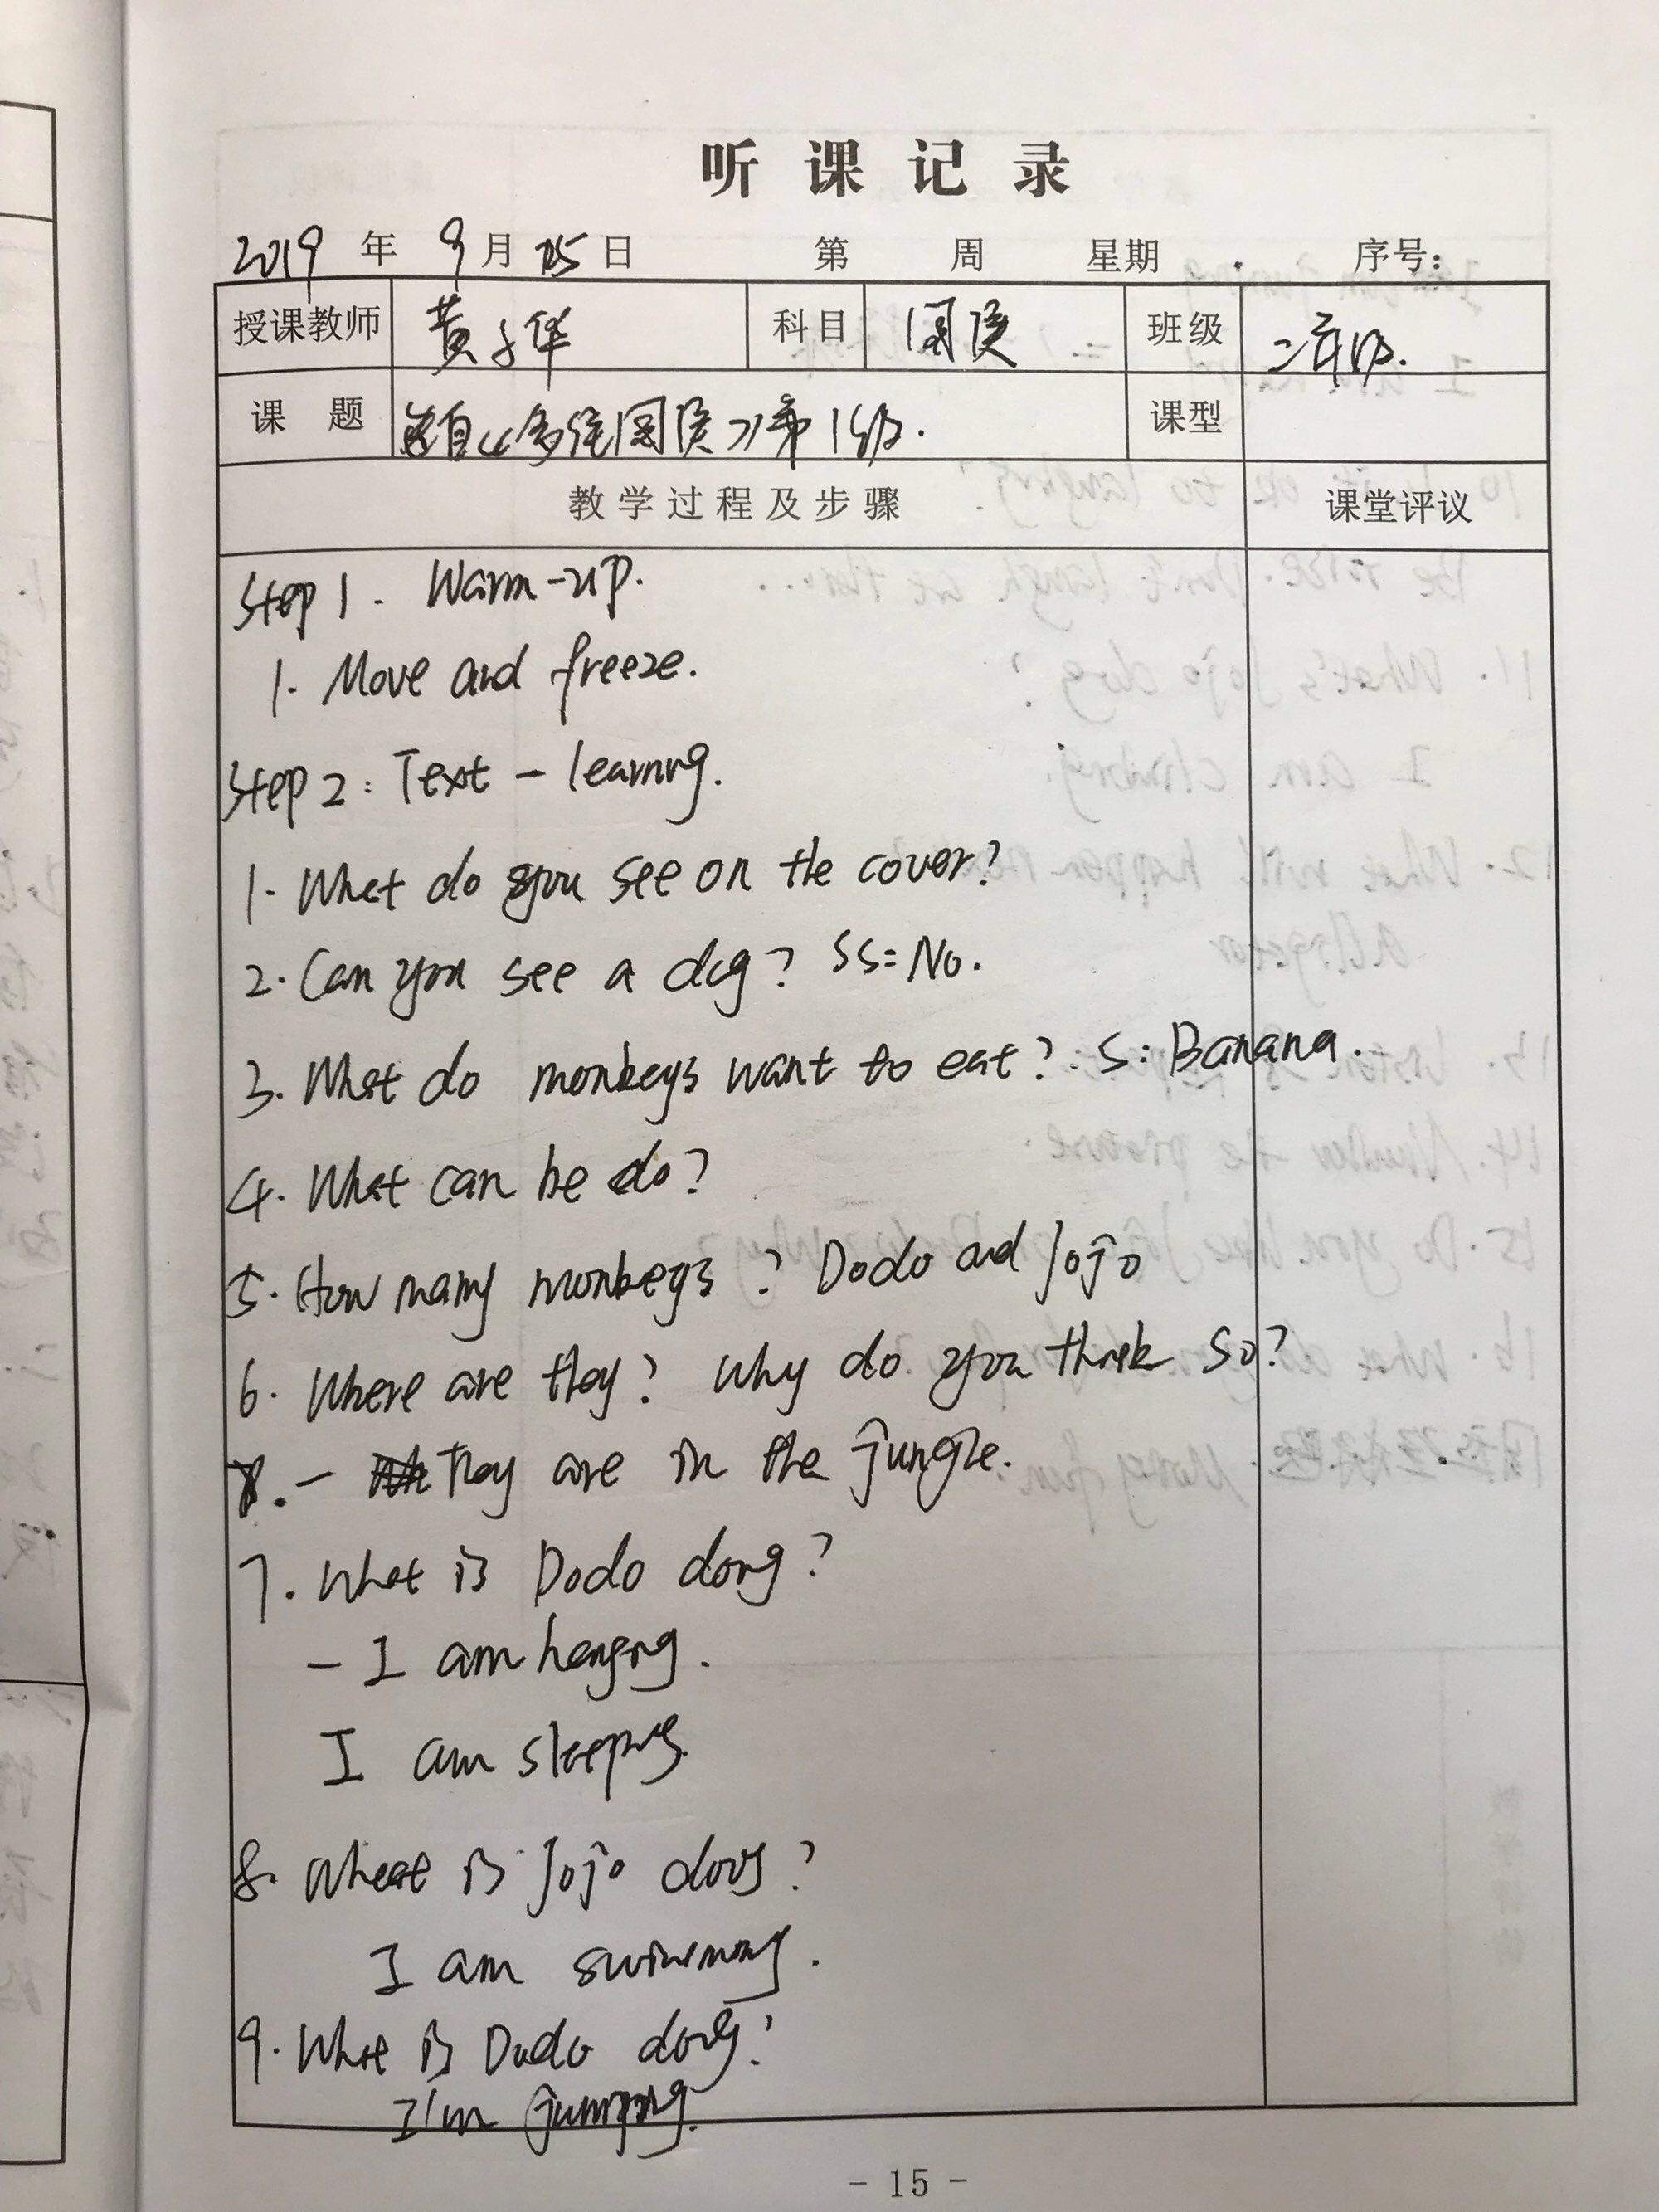 听课记录
2019 年 9 月 25 日 第 周 星期 序号：
授课教师 黄子华 科目 阅读 班级 二年级.
课 题 选自《多维阅读》第1级. 课型
教学过程及步骤 课堂评议
Step 1. Warm-up.
1. Move and freeze.
Step 2: Text - learning.
1. What do you see on the cover?
2. Can you see a dog? SS: No.
3. What do monkeys want to eat? S: Banana.
4. What can he do?
5. How many monkeys? Dodo and Jojo
6. Where are they? Why do you think so?
- They are in the jungle.
7. What is Dodo doing?
- I am hanging.
I am sleeping.
8. What is Jojo doing?
I am swimming.
9. What is Dodo doing?
I'm jumping.
- 15 -